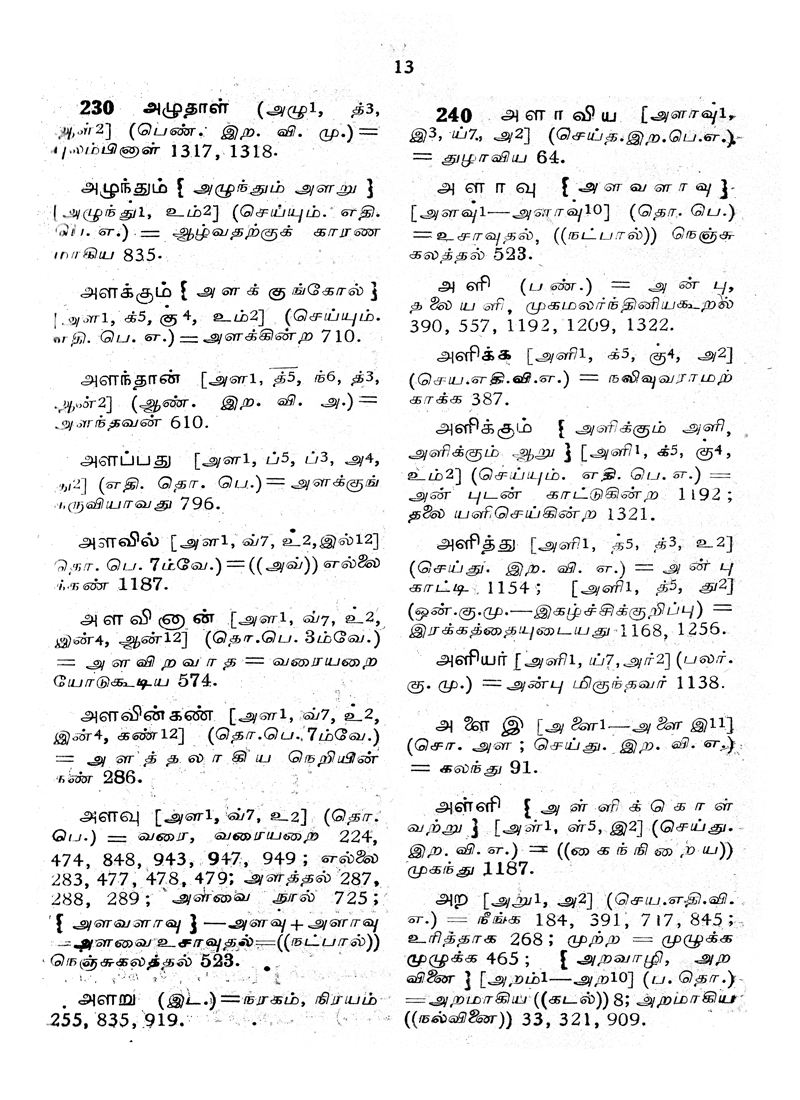 13
230 அழுதாள் (அழு1, த்3,
ஆள்2] (பெண். இற. வி. மு.) =
புலம்பினாள் 1317, 1318.
அழுந்தும் { அழுந்தும் அளறு }
[அழுந்து1, உம்2] (செய்யும். எதி.
பெ. எ.) = ஆழ்வதற்குக் காரண
மாகிய 835.
அளக்கும் { அளக்குங்கோல் }
[அள1, க்5, கு4, உம்2] (செய்யும்.
எதி. பெ. எ.) = அளக்கின்ற 710.
அளந்தான் [அள1, த்5, ந்6, த்3,
ஆன்2] (ஆண். இற. வி. அ.) =
அளந்தவன் 610.
அளப்பது [அள1, ப்5, ப்3, அ4,
து2] (எதி. தொ. பெ.) = அளக்குங்
கருவியாவது 796.
அளவில் [அள1, வ்7, உ2, இல்12]
தொ. பெ. 7ம்வே.) = ((அவ்)) எல்லை
க்கண் 1187.
அளவினான் [அள1, வ்7, உ2,
இன்4, ஆன்12] (தொ.பெ. 3ம்வே.)
= அளவிறவாத = வரையறை
யோடுகூடிய 574.
அளவின்கண் [அள1, வ்7, உ2,
இன்4, கண்12] (தொ.பெ. 7ம்வே.)
= அளத்தலாகிய நெறியின்
கண் 286.
அளவு [அள1, வ்7, உ2] (தொ.
பெ.) = வரை, வரையறை 224,
474, 848, 943, 947, 949 ; எல்லை
283, 477, 478, 479; அளத்தல் 287,
288, 289 ; அளவை நூல் 725 ;
{ அளவளாவு } — அளவு + அளாவு
= அளவை உசாவுதல் = ((நட்பால்))
நெஞ்சுகலத்தல் 523.
அளறு (இட.) = நரகம், நிரயம்
255, 835, 919.
240 அளாவிய [அளாவு1,
இ3, ய்7, அ2] (செய்த.இற.பெ.எ.)
= துழாவிய 64.
அளாவு { அளவளாவு }
[அளவு1—அளாவு10] (தொ. பெ.)
= உசாவுதல், ((நட்பால்)) நெஞ்சு
கலத்தல் 523.
அளி (பண்.) = அன்பு,
தலையளி, முகமலர்ந்தினியகூறல்
390, 557, 1192, 1209, 1322.
அளிக்க [அளி1, க்5, கு4, அ2]
(செய.எதி.வி.எ.) = நலிவுவராமற்
காக்க 387.
அளிக்கும் { அளிக்கும் அளி,
அளிக்கும் ஆறு } [அளி1, க்5, கு4,
உம்2] (செய்யும். எதி. பெ. எ.) =
அன்புடன் காட்டுகின்ற 1192 ;
தலையளிசெய்கின்ற 1321.
அளித்து [அளி1, த்5, த்3, உ2]
(செய்து. இற. வி. எ.) = அன்பு
காட்டி 1154 ; [அளி1, த்5, து2]
(ஒன்.கு.மு.—இகழ்ச்சிக்குறிப்பு) =
இரக்கத்தையுடையது 1168, 1256.
அளியர் [அளி1, ய்7, அர்2] (பலர்.
கு. மு.) = அன்பு மிகுந்தவர் 1138.
அளைஇ [அளை1—அளைஇ11]
(சொ. அள ; செய்து. இற. வி. எ.)
= கலந்து 91.
அள்ளி { அள்ளிக்கொள்
வற்று } [அள்1, ள்5, இ2] (செய்து.
இற. வி. எ.) = ((கைந்நிறைய))
முகந்து 1187.
அற [அறு1, அ2] (செய.எதி.வி.
எ.) = நீங்க 184, 391, 717, 845 ;
உரித்தாக 268 ; முற்ற = முழுக்க
முழுக்க 465 ; { அறவாழி, அற
வினை } [அறம்1—அற10] (ப. தொ.)
= அறமாகிய ((கடல்)) 8; அறமாகிய
((நல்வினை)) 33, 321, 909.